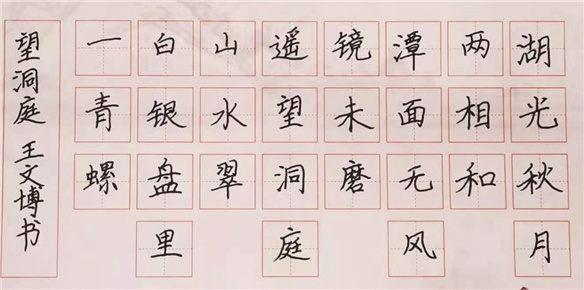 湖光秋月
两相和
潭面无风
镜未磨
遥望洞庭
山水翠
白银盘里
一青螺
望洞庭 王文博书